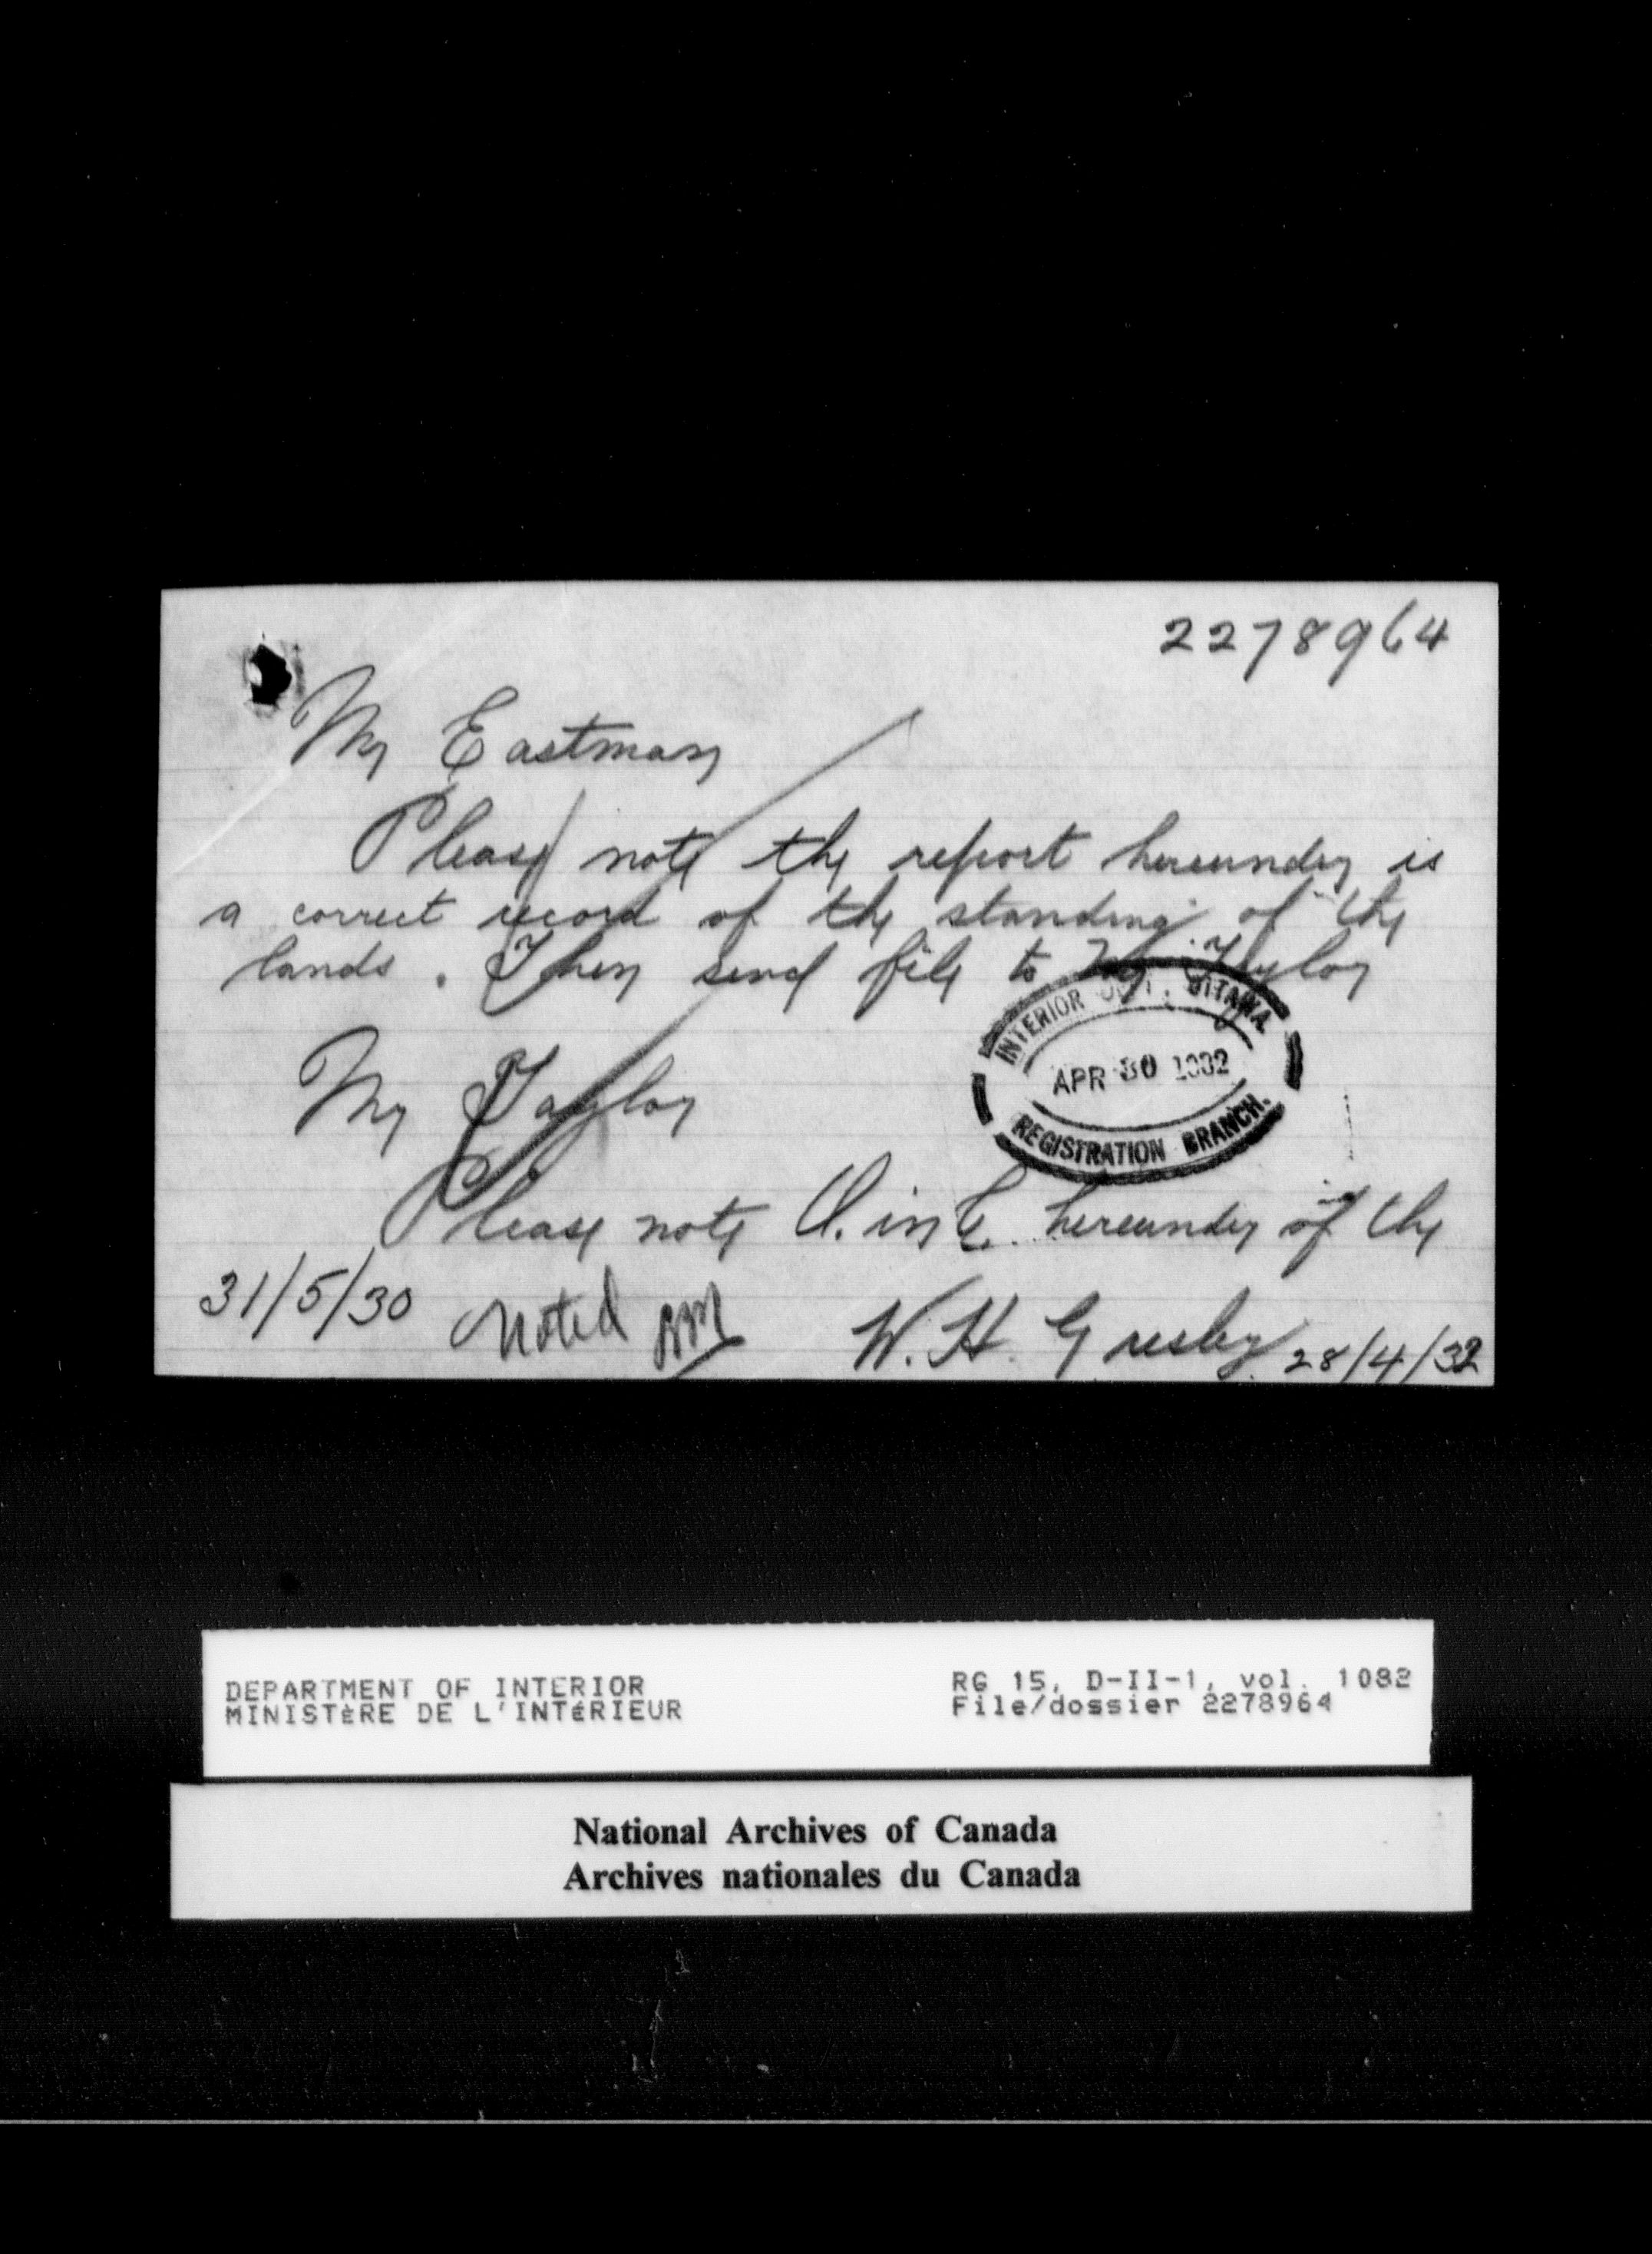 2278964
Mr Eastman
Please note the report hereunder is
a correct record of the standing of the
lands. Then send file to Mr Taylor
INTERIOR DEPT. OTTAWA.
APR 30 1932
REGISTRATION BRANCH.
Mr Taylor
Please note O. in C. hereunder of the
31/5/30 Noted W. H. Gresley 28/4/32
DEPARTMENT OF INTERIOR
MINISTÈRE DE L'INTÉRIEUR
RG 15, D-II-1, vol. 1082
File/dossier 2278964
National Archives of Canada
Archives nationales du Canada